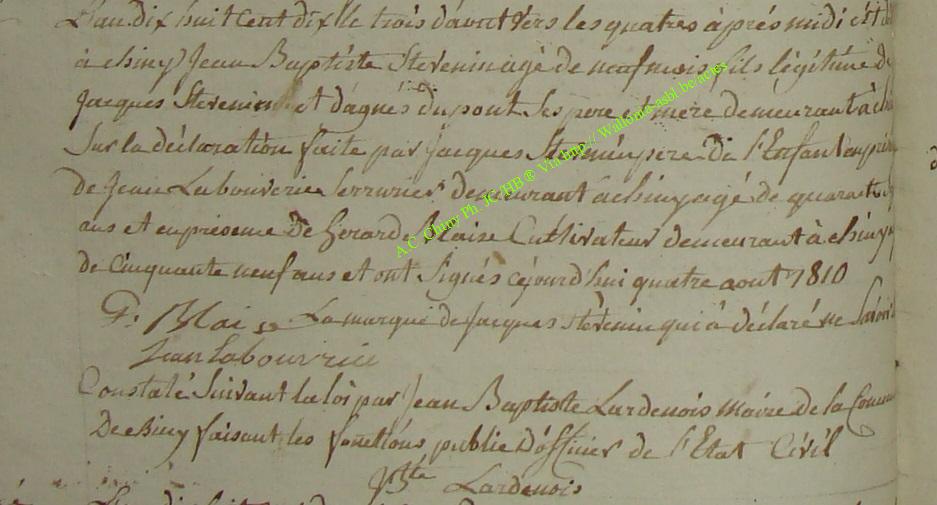 L'an dix huit cent dix le trois d'aout vers les quatres à après midi est
à chiny Jean Baptiste Stévenin agé de neuf mois fils légitime de
Jacques Stévenin et d'agnés dupont Ses pere et mere demeurant à
Sur la déclaration faite par Jacques Stévenin pere De l'Enfant
de Jean Labouverie Serrurier demeurant à chiny agé de quarante
ans et en présence De Gerard Blaise Cultivateur demeurant à chiny
de Cinquante neuf ans et ont Signés cejourd'hui quatre aout 1810
G: Blaise La marque de Jacques Stévenin qui à déclaré ne Savoir
Jean Labouverie
Constaté Suivant la loi par Jean Baptiste Lardenois maire de la
De chiny faisant les fonctions public D'officier de l'Etat Civil
JBte Lardenois
A.C. Chiny Ph. JC/HB ® Via http:// Wallonia-asbl.be/actes